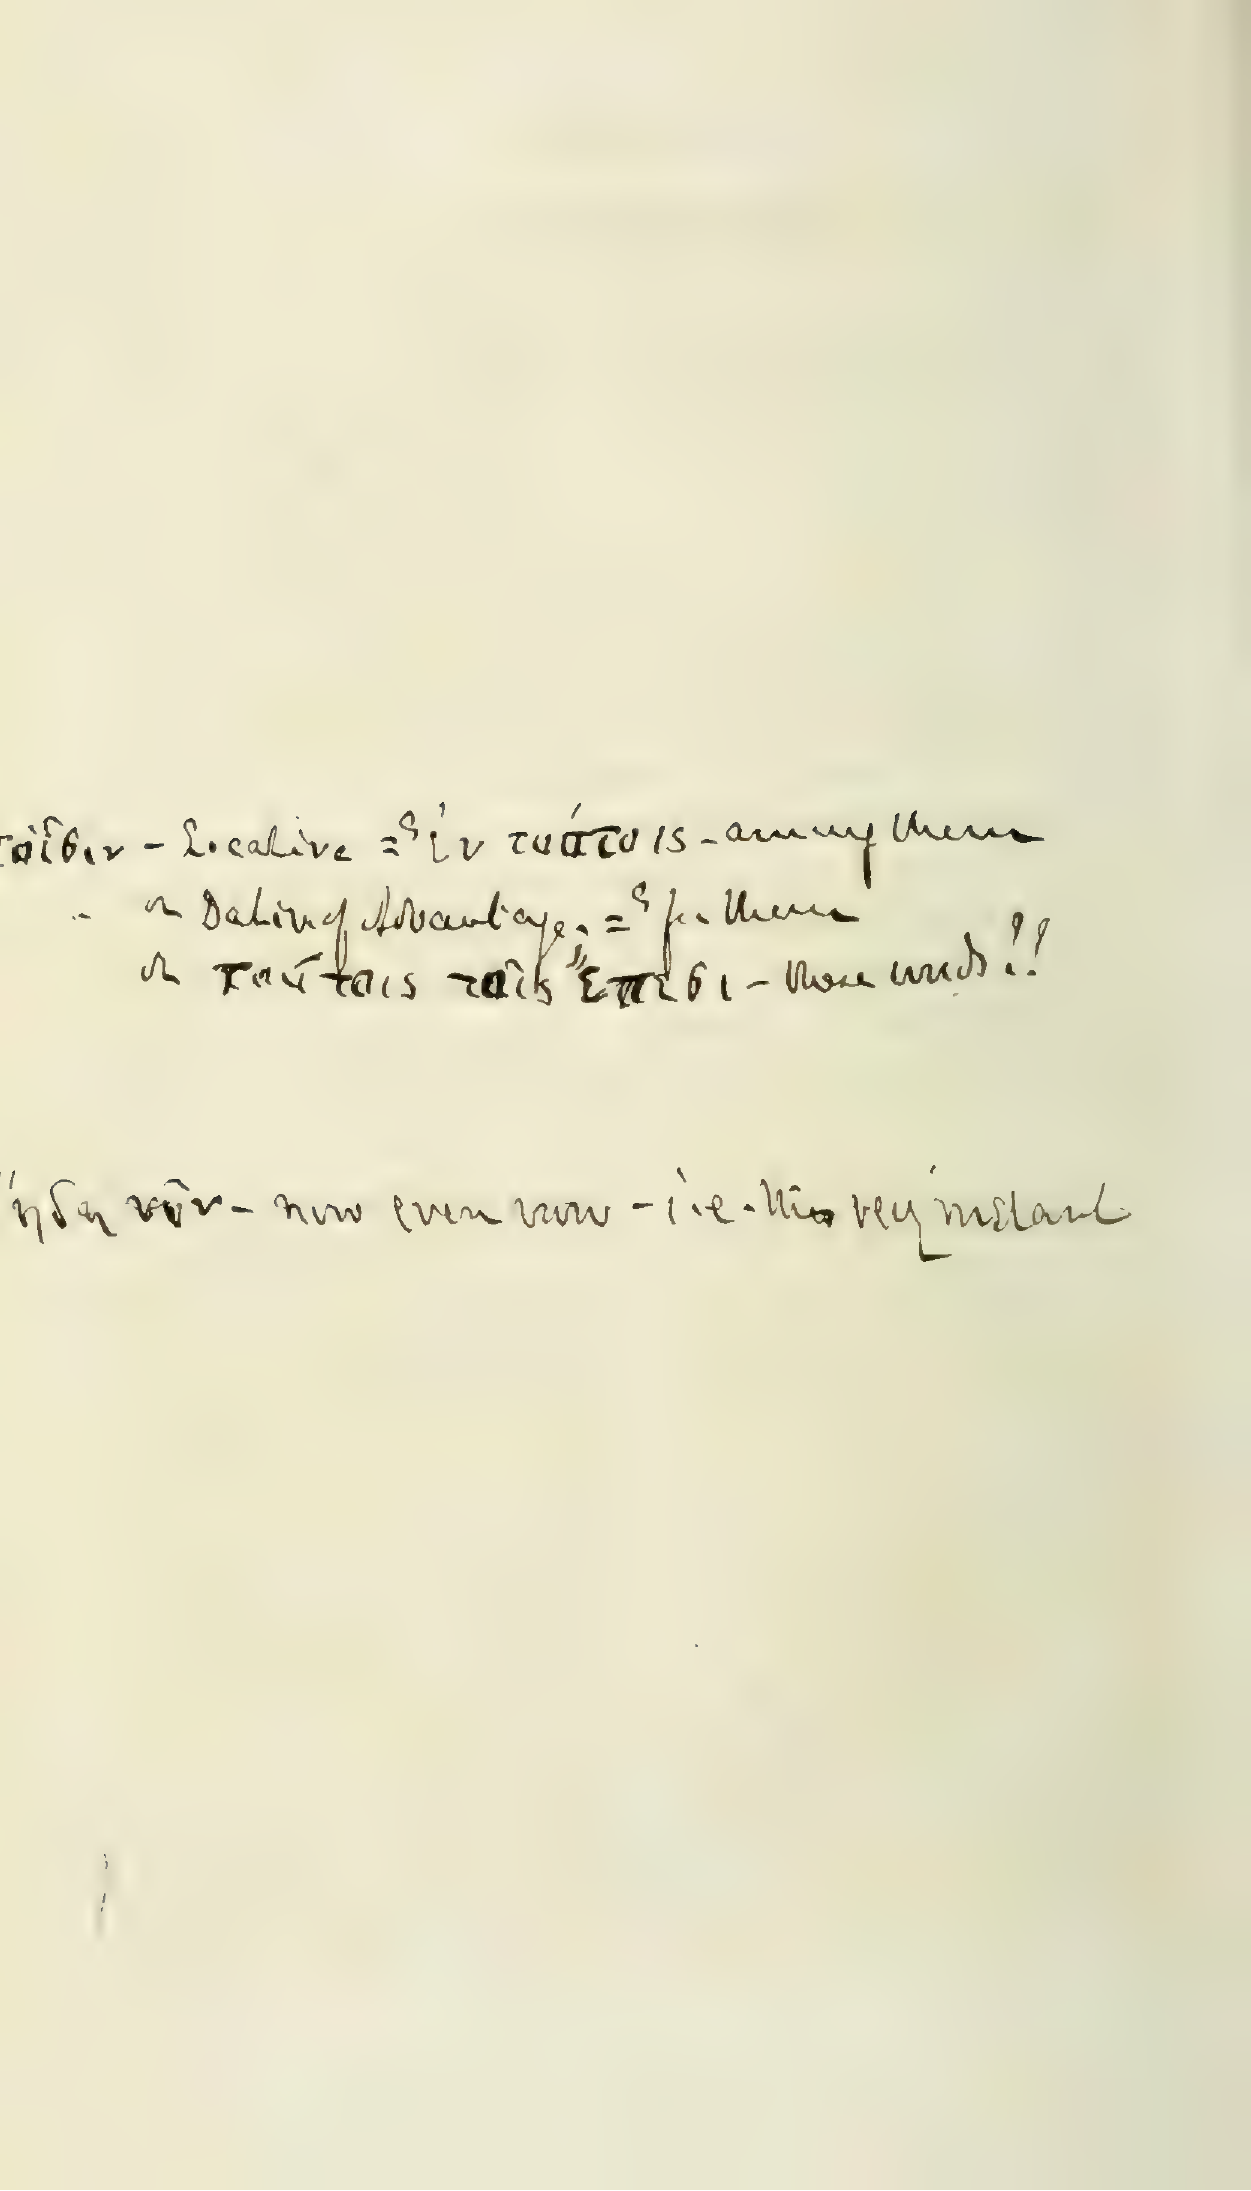 τοῖσιν - Locative = ἐν τούτοις - among them
or Dative of Advantage. = for them
or τούτοις τοῖς ἔπεσι - those words!!
ἤδη νῦν - now even now - i.e. this very instant